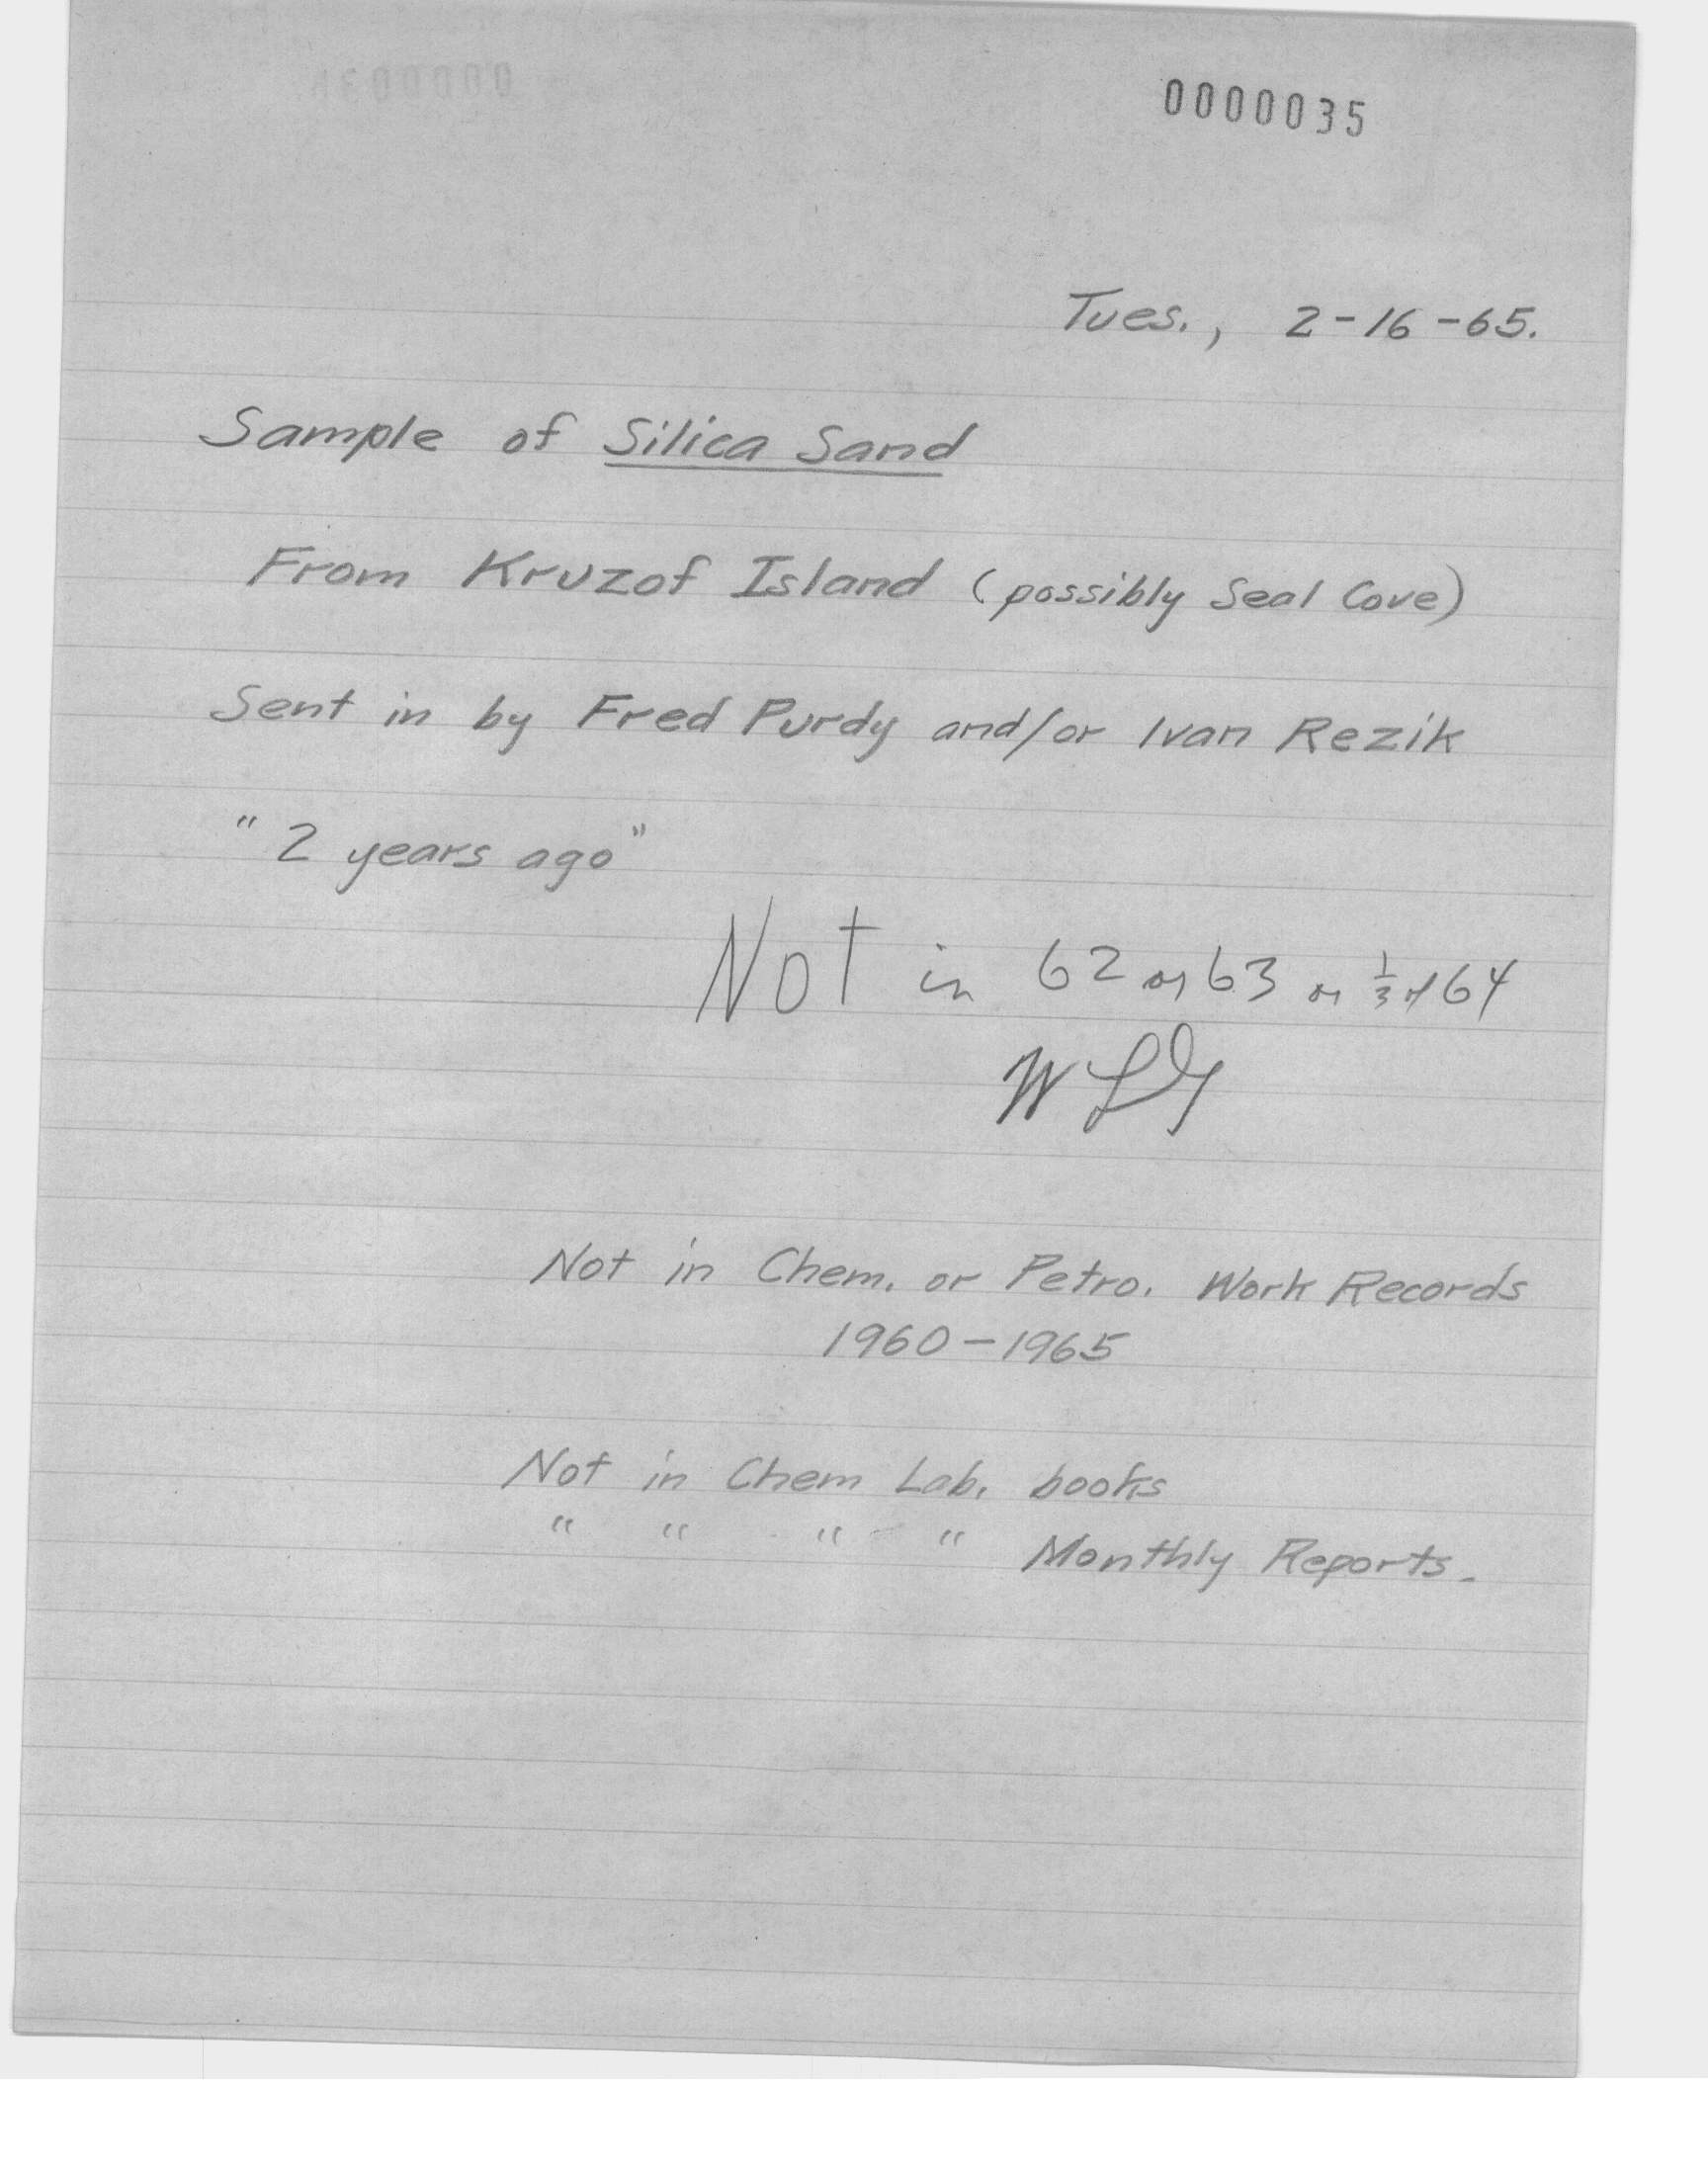 0000035
Tues., 2-16-65.
Sample of Silica Sand
From Kruzof Island (possibly Seal Cove)
Sent in by Fred Purdy and/or Ivan Rezik
"2 years ago"
Not in 62 or 63 or 1/3 of 64
Not in Chem. or Petro. Work Records
1960-1965
Not in Chem Lab. books
" " " " Monthly Reports.